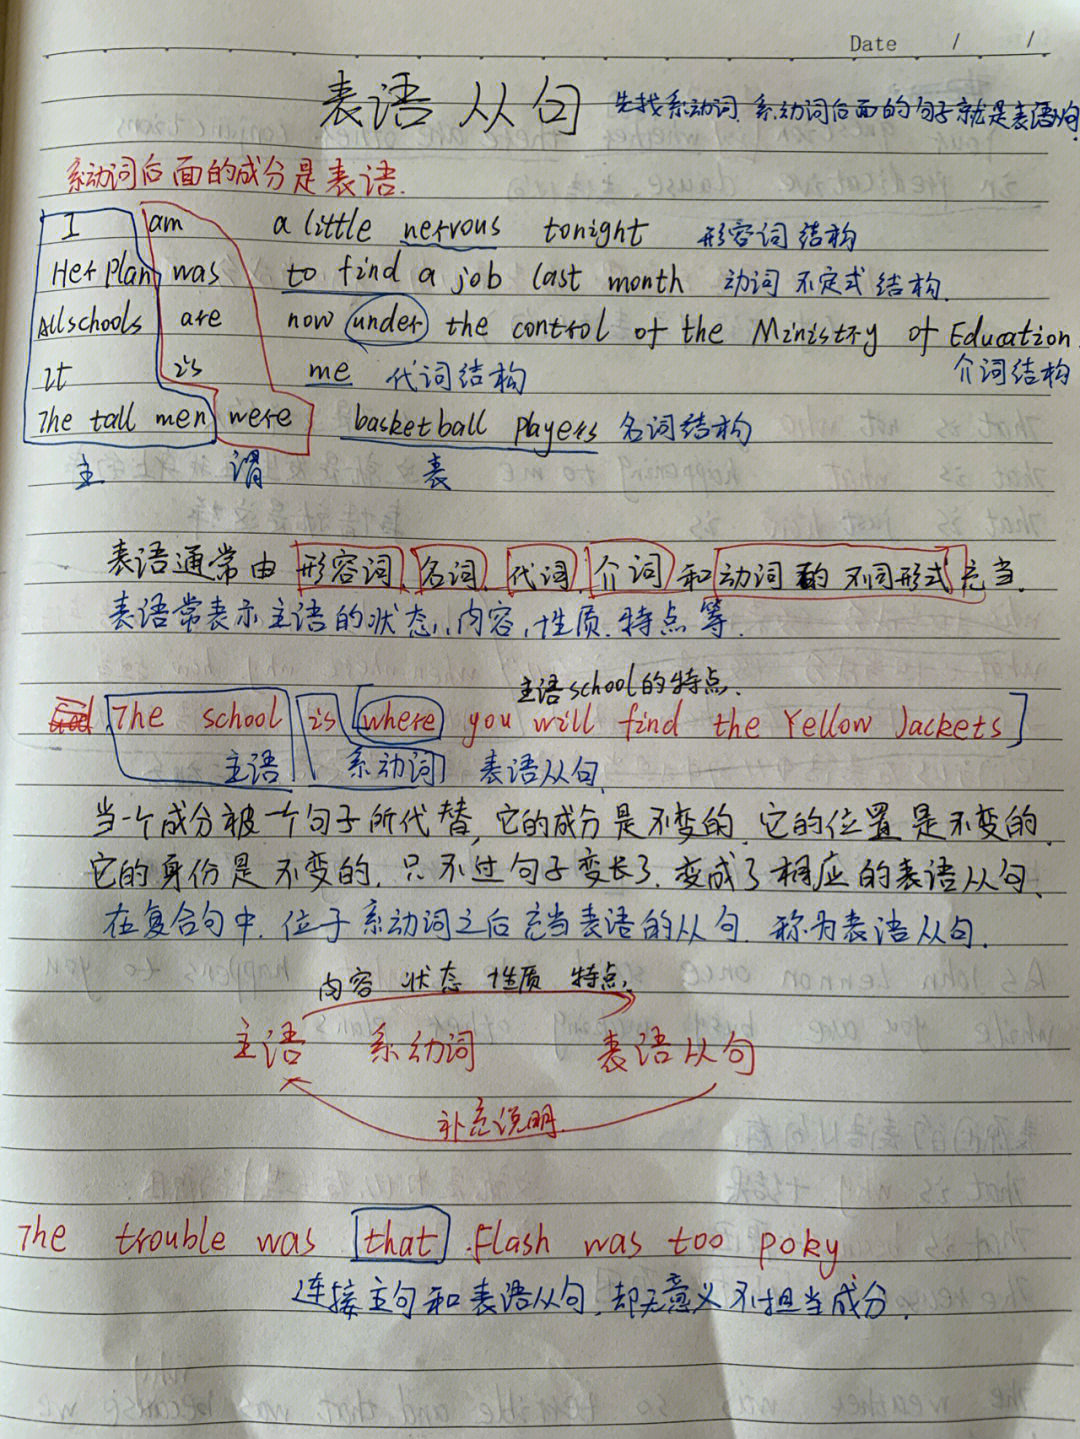 Date / /
表语从句 先找系动词.系动词后面的句子就是表语从句
系动词后面的成分是表语.
I am a little nervous tonight 形容词结构
Her plan was to find a job last month 动词不定式结构.
All schools are now under the control of the Ministry of Education.
It is me 代词结构 介词结构
The tall men were basketball players 名词结构
主 谓 表
表语通常由形容词.名词.代词.介词和动词的不同形式充当.
表语常表示主语的状态,内容,性质.特点等.
主语school的特点.
The school is [where you will find the Yellow Jackets]
主语 系动词 表语从句
当一个成分被一个句子所代替,它的成分是不变的.它的位置是不变的.
它的身份是不变的.只不过句子变长了.变成了相应的表语从句、
在复合句中.位于系动词之后充当表语的从句.称为表语从句.
内容 状态 性质 特点.
主语 系动词 表语从句
补充说明.
The trouble was that Flash was too poky
连接主句和表语从句.却无意义不担当成分.